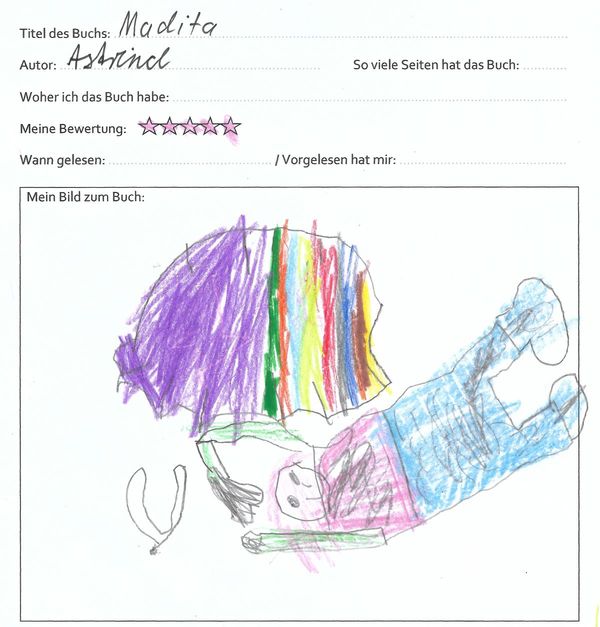 Titel des Buchs: Madita
Autor: Astrind So viele Seiten hat das Buch:
Woher ich das Buch habe:
Meine Bewertung:
Wann gelesen: / Vorgelesen hat mir:
Mein Bild zum Buch: